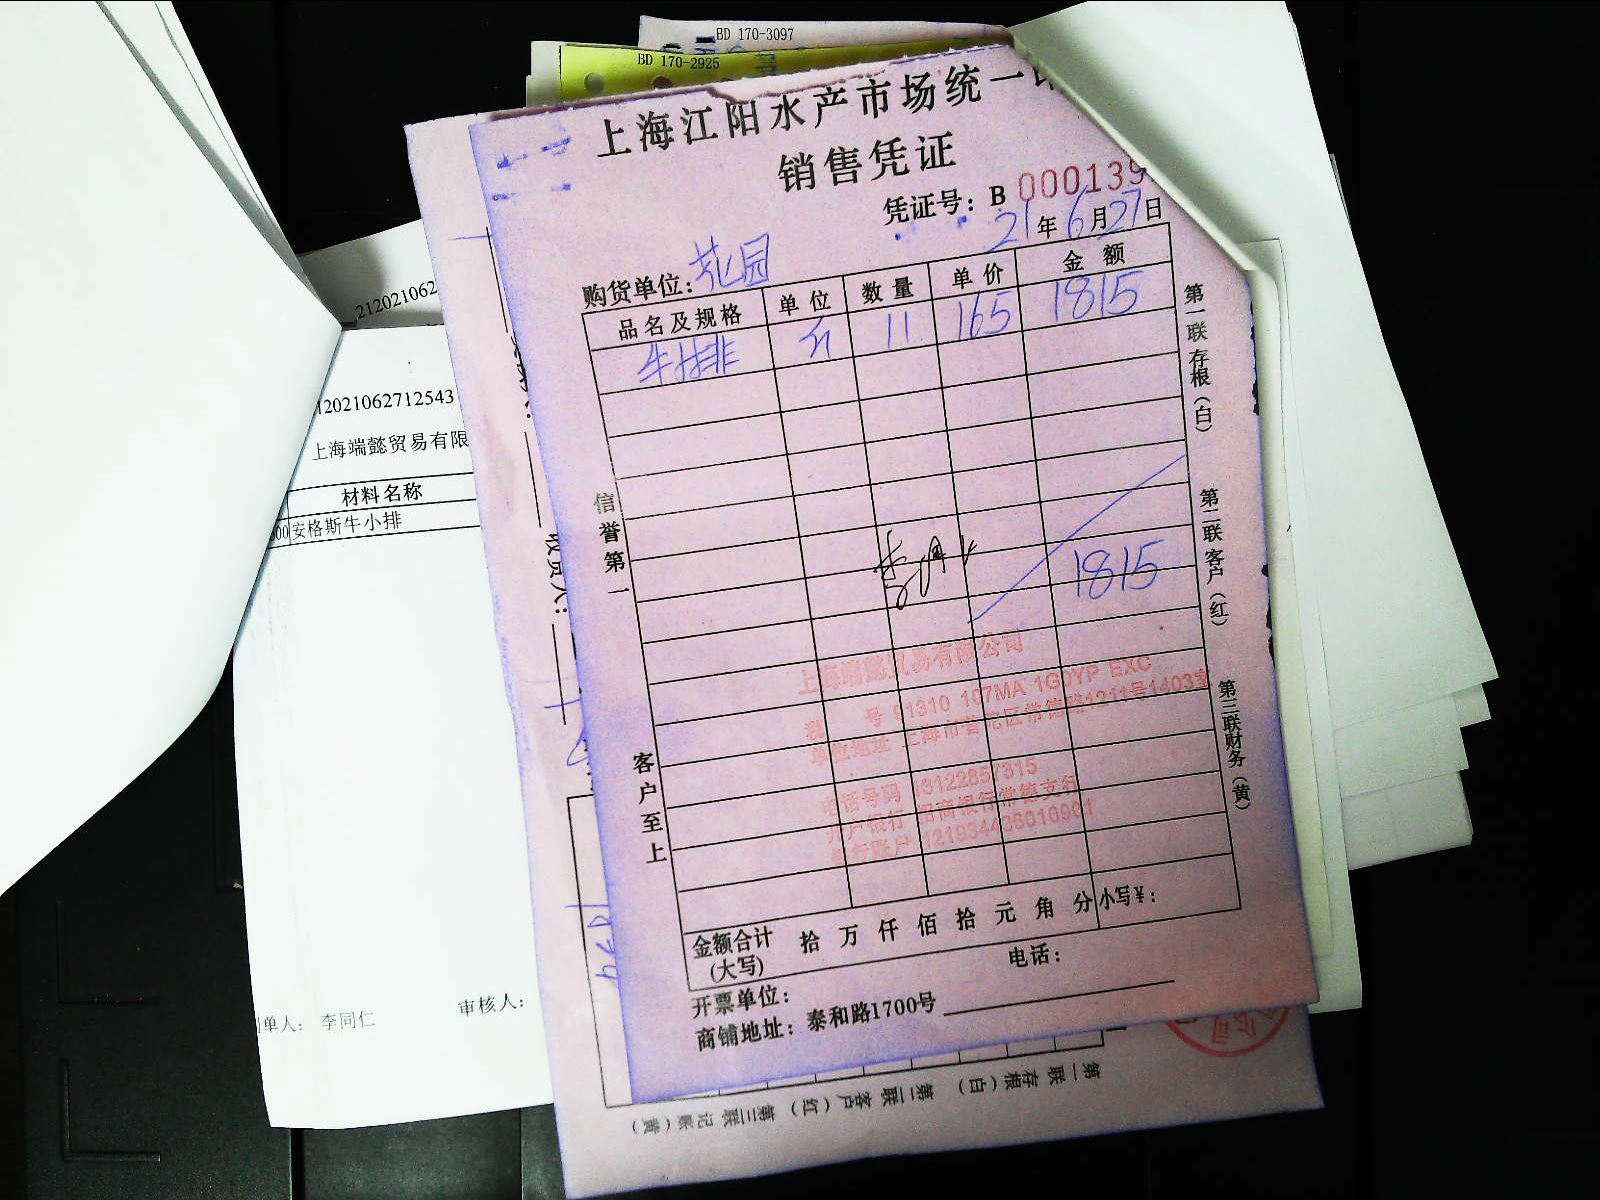 BD 170-3097
BD 170-2925
上海江阳水产市场统一
销售凭证
凭证号: B 000139
21年6月27日
购货单位: 花园
品名及规格 单位 数量 单价 金额
牛排 11 165 1815
1815
第一联存根(白)
第二联客户(红)
第三联财务(黄)
信誉第一
客户至上
上海端懿贸易有限公司
税 号 91310 107MA 1G0YP EXC
单位地址 上海市普陀区常德路1211号1403室
电话号码 13122857315
开户银行 招商银行常德支行
银行账户 121934436010901
金额合计(大写) 拾 万 仟 佰 拾 元 角 分 小写¥:
开票单位: 电话:
商铺地址: 泰和路1700号
212021062
12021062712543
上海端懿贸易有限
材料名称
00 安格斯牛小排
单人: 李同仁 审核人:
收货人:
第一联 存根(白) 第二联 客户(红) 第三联 记账(黄)